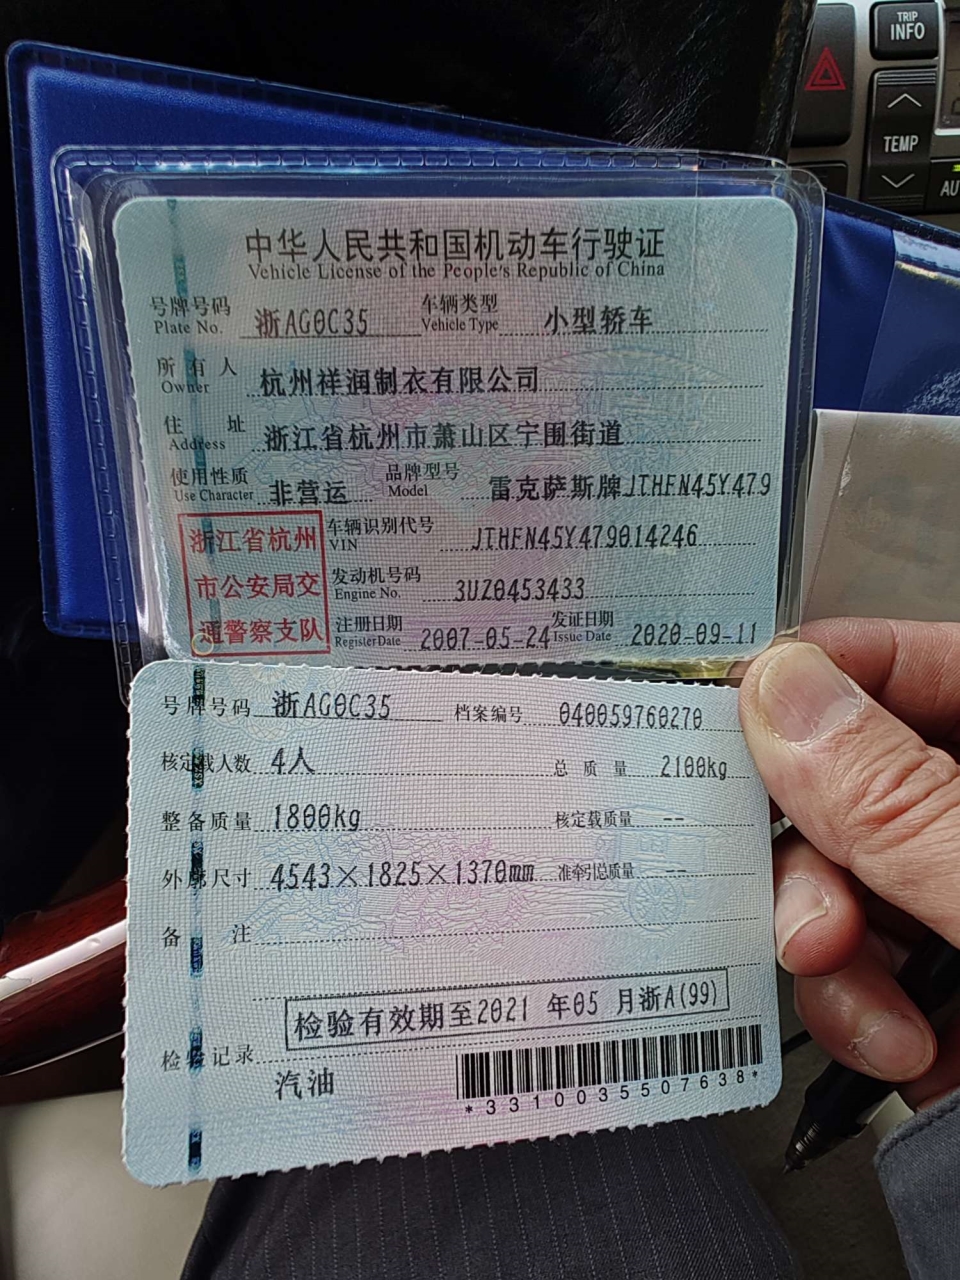 TRIP
INFO
TEMP
AU
中华人民共和国机动车行驶证
Vehicle License of the People's Republic of China
号牌号码 浙AG0C35 车辆类型 小型轿车
Plate No. Vehicle Type
所有人 杭州祥润制衣有限公司
Owner
住址 浙江省杭州市萧山区宁围街道
Address
使用性质 非营运 品牌型号 雷克萨斯牌JTHFN45Y479
Use Character Model
浙江省杭州
市公安局交
通警察支队
车辆识别代号 JTHFN45Y479014246
VIN
发动机号码 3UZ0453433
Engine No.
注册日期 2007-05-24 发证日期 2020-09-11
Register Date Issue Date
号牌号码 浙AG0C35 档案编号 040059760270
核定载人数 4人 总质量 2100kg
整备质量 1800kg 核定载质量 --
外廓尺寸 4543×1825×1370mm 准牵引总质量 --
备注
检验有效期至2021 年05 月浙A(99)
检验记录
汽油
*3310035507638*